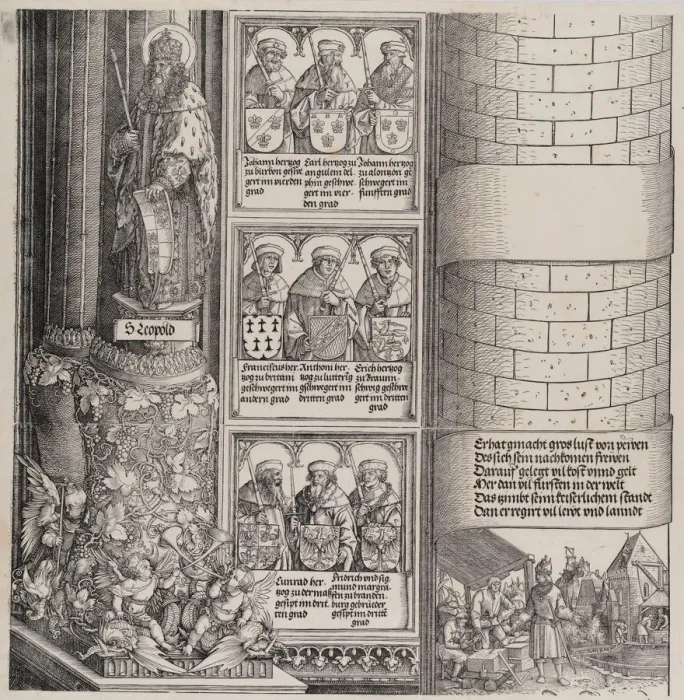 S Leopold
Johann herzog
zu burbon gesiwe
gert im vierden
grad
Carl herzog zu
angulem del
phin geschwe
gert im vier-
den grad
Johann herzog
zu alonzon ge
schwegert im
funfften grad
Franciscus her.
zog zu britani
geschwegert im
andern grad
Anthoni her
zog zu luttrig
gschwegert im
dritten grad
Erich herzog
zu Braunn-
schwig geschwe
gert im dritten
grad
Cunrad her
zog zu der mass
gesipt im drit
ten grad
Fridrich vnd sig
mund margra
ffen zu branden
burg gebrüder
gesipt im dritt
grad
Er hat gmacht gros lust von pewen
Des sich sein nachkomen frewen
Darauf gelegt vil kost vnnd gelt
Mer dan vil fursten in der welt
Das zymbt seim keiserlichem standt
Dan er regirt vil lewt vnd lanndt